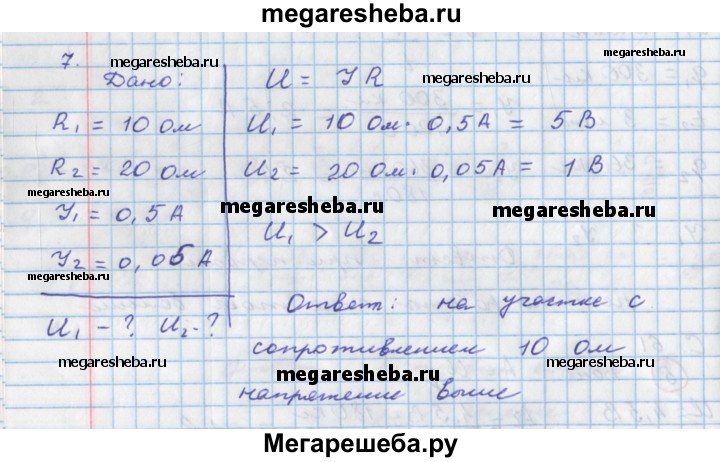 megaresheba.ru
7.
Дано:
U = IR
megaresheba.ru
megaresheba.ru
megaresheba.ru
R₁ = 10 Ом
U₁ = 10 Ом · 0,5 А = 5 В
R₂ = 20 Ом
U₂ = 20 Ом · 0,05 А = 1 В
megaresheba.ru
megaresheba.ru
megaresheba.ru
I₁ = 0,5 А
U₁ > U₂
I₂ = 0,05 А
megaresheba.ru
U₁ - ? U₂ - ?
Ответ: на участке с
сопротивлением 10 Ом
megaresheba.ru
megaresheba.ru
напряжение выше
Мегарешеба.ру